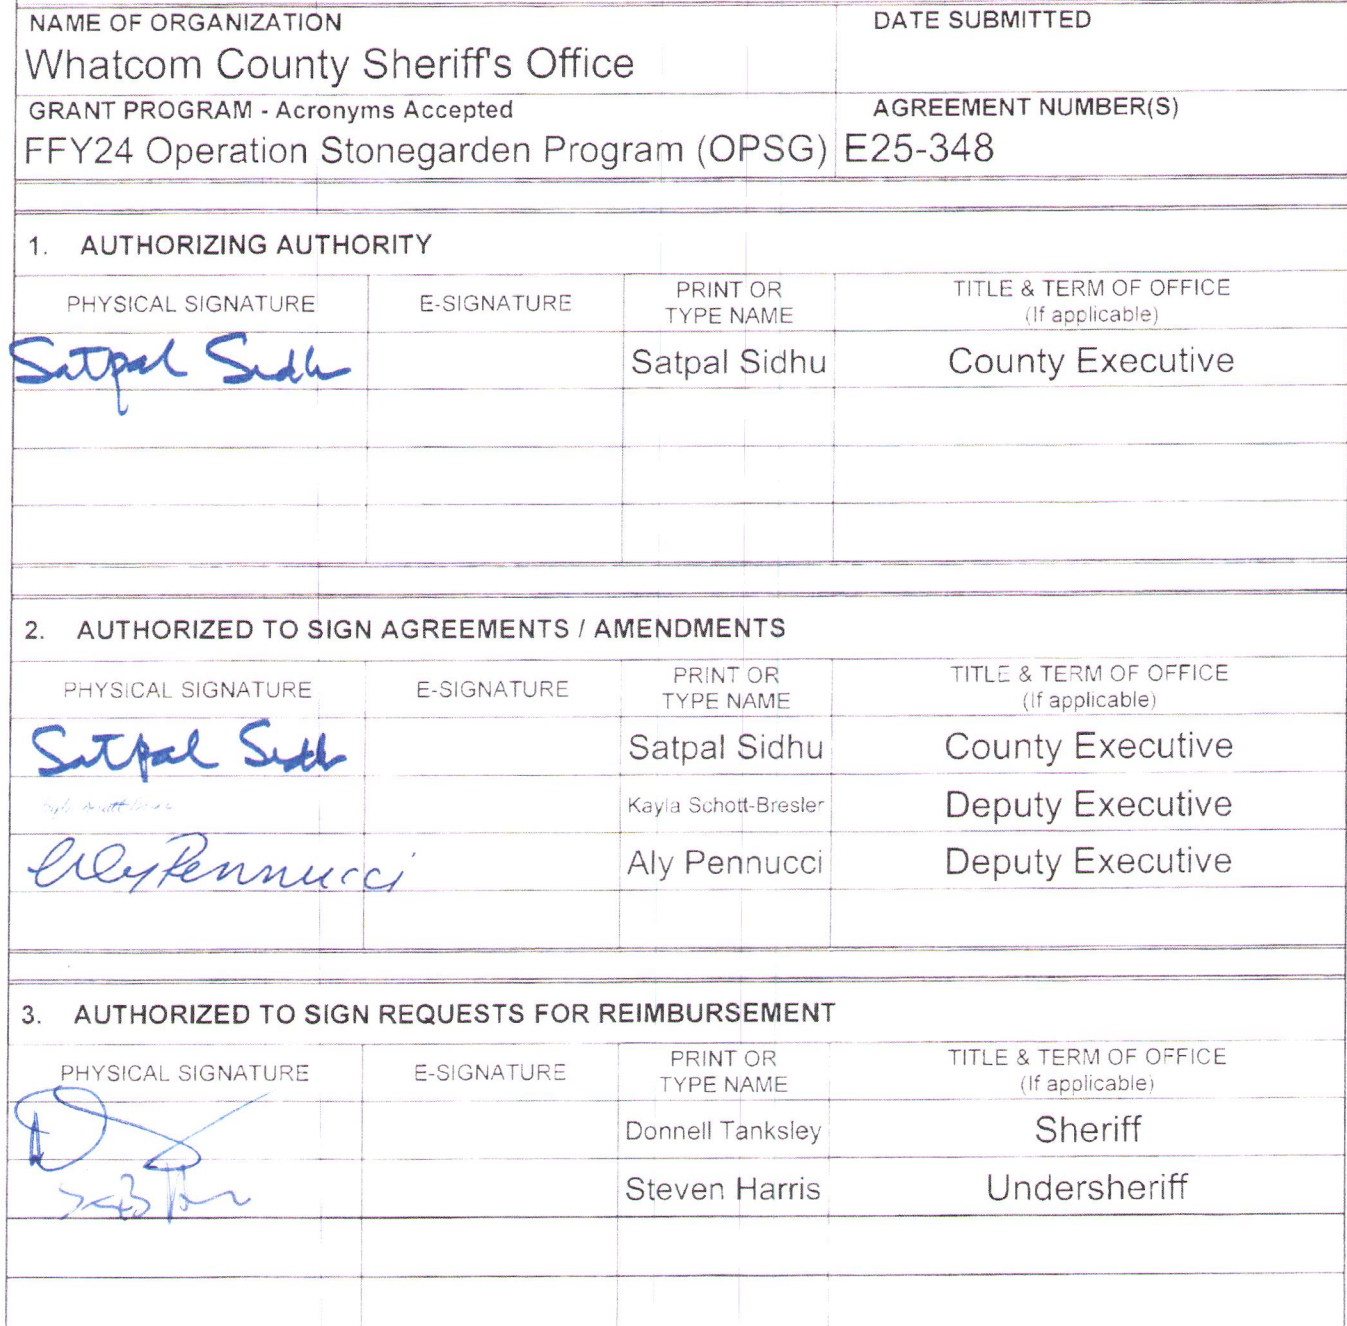 NAME OF ORGANIZATION
DATE SUBMITTED
Whatcom County Sheriff's Office
GRANT PROGRAM - Acronyms Accepted
AGREEMENT NUMBER(S)
FFY24 Operation Stonegarden Program (OPSG)
E25-348
1. AUTHORIZING AUTHORITY
PHYSICAL SIGNATURE
E-SIGNATURE
PRINT OR
TYPE NAME
TITLE & TERM OF OFFICE
(If applicable)
Satpal Sidhu
Satpal Sidhu
County Executive
2. AUTHORIZED TO SIGN AGREEMENTS / AMENDMENTS
PHYSICAL SIGNATURE
E-SIGNATURE
PRINT OR
TYPE NAME
TITLE & TERM OF OFFICE
(If applicable)
Satpal Sidhu
Satpal Sidhu
County Executive
Kayla Schott-Bresler
Deputy Executive
Aly Pennucci
Aly Pennucci
Deputy Executive
3. AUTHORIZED TO SIGN REQUESTS FOR REIMBURSEMENT
PHYSICAL SIGNATURE
E-SIGNATURE
PRINT OR
TYPE NAME
TITLE & TERM OF OFFICE
(If applicable)
Donnell Tanksley
Sheriff
Steven Harris
Undersheriff